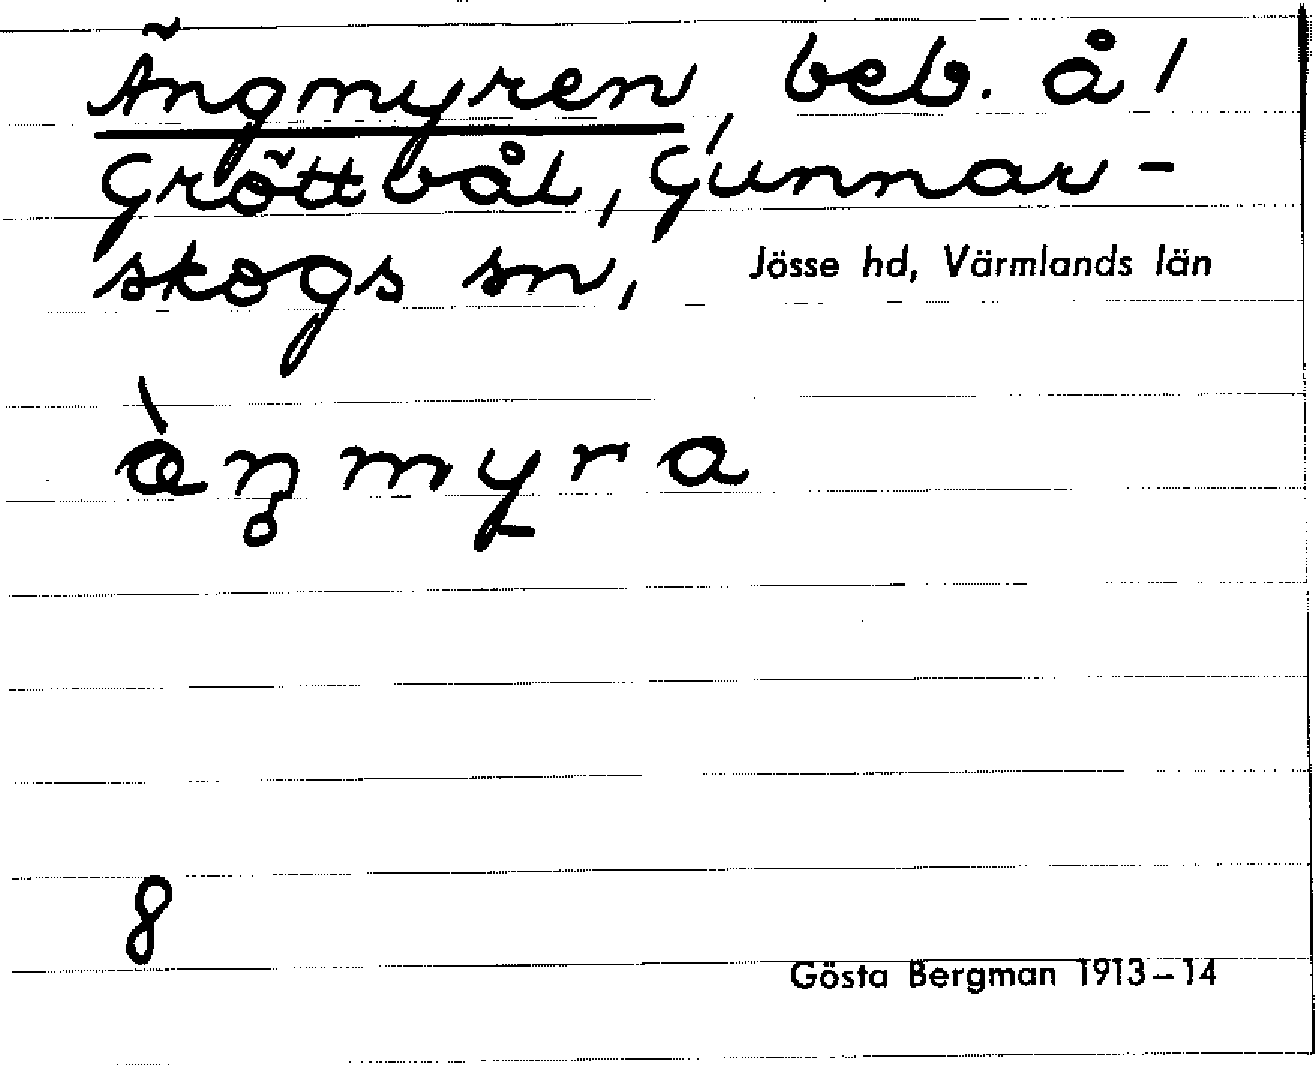 Ängmyren, beb. å 1
Gröttbål, Gunnar-
skogs sn, Jösse hd, Värmlands län
àŋmyra
8
Gösta Bergman 1913–14